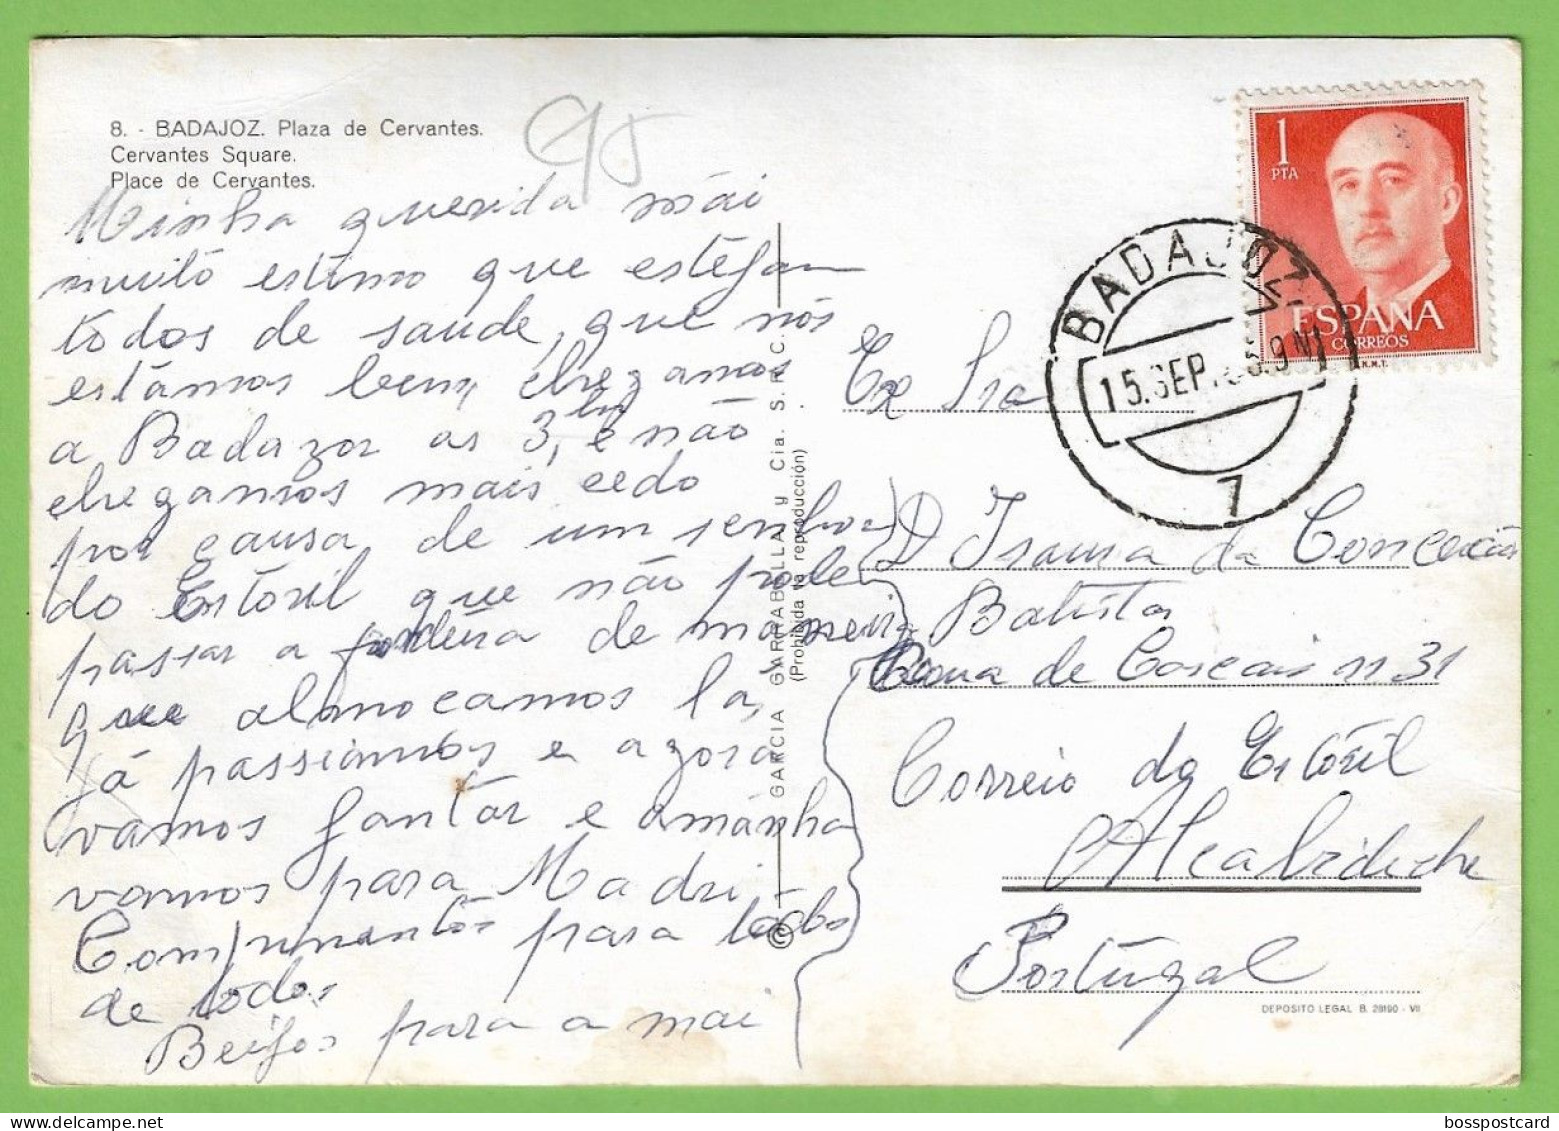 8. - BADAJOZ. Plaza de Cervantes.
Cervantes Square.
Place de Cervantes.
Minha querida mãi
muito estimo que estejam
todos de saude, que nós
estámos bem, chegamos
a Badazoz as 3h, e não
chegamos mais cedo
por causa de um senhor
do Estoril que não pode
passar a de maneira
que almocamos la,
Já passiámos e agora
vamos jantar e amánha
vamos para Madri
Comprimentos para todos
de todos
Beijos para a mai
GARCIA GARRABELLA y Cia. S. R. C.
(Prohibida la reproducción)
©
1
PTA
ESPAÑA
CORREOS
F.N.M.T.
BADAJOZ
15.SEP.
1
Ex Sra
D Isaura da Conceicão
Batista
de Cascais nº 31
Correio do Estoril
Alcabideche
Portugal
DEPOSITO LEGAL B. 28190 - VII
bosspostcard